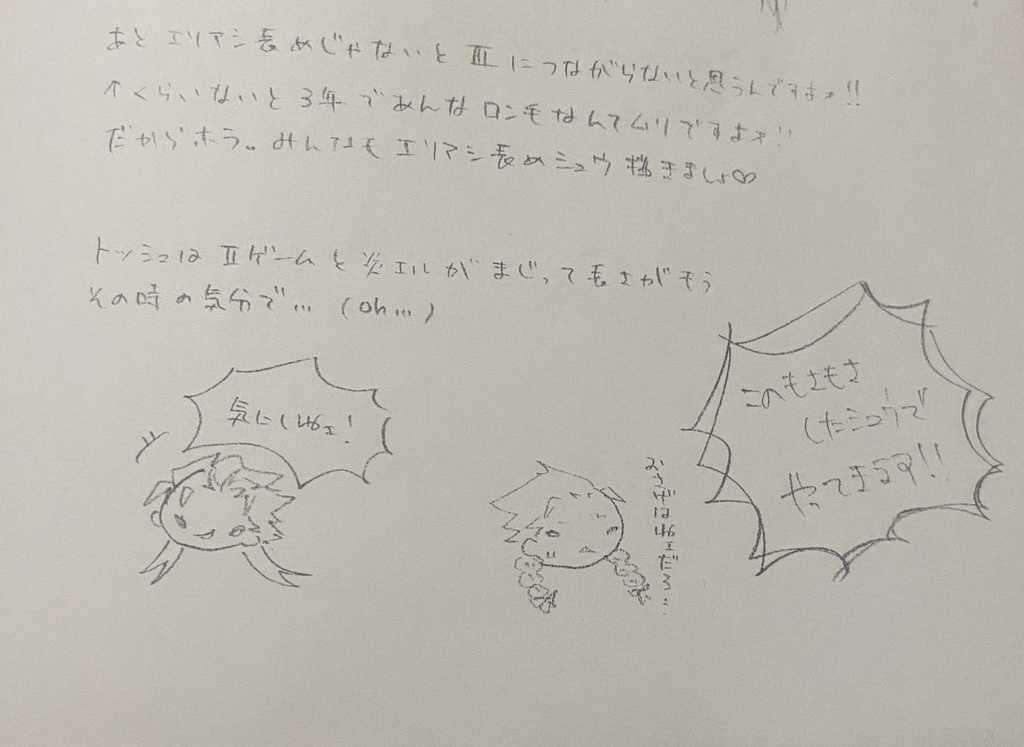 あと エリアシ長めじゃないと Ⅲ につながらないと思うんですよォ!!
↑くらいないと 3年であんな ロン毛なんてムリですよォ!!
だからホラ。みんなも エリアシ長めシュウ 描きましょ♡
トッシュは Ⅱゲームと炎エルが まじって長さがもう
その時の気分で… (Oh…)
気にしねェ!
おさげはねェだろ…
このもさもさ
したシュウで
やってきます!!